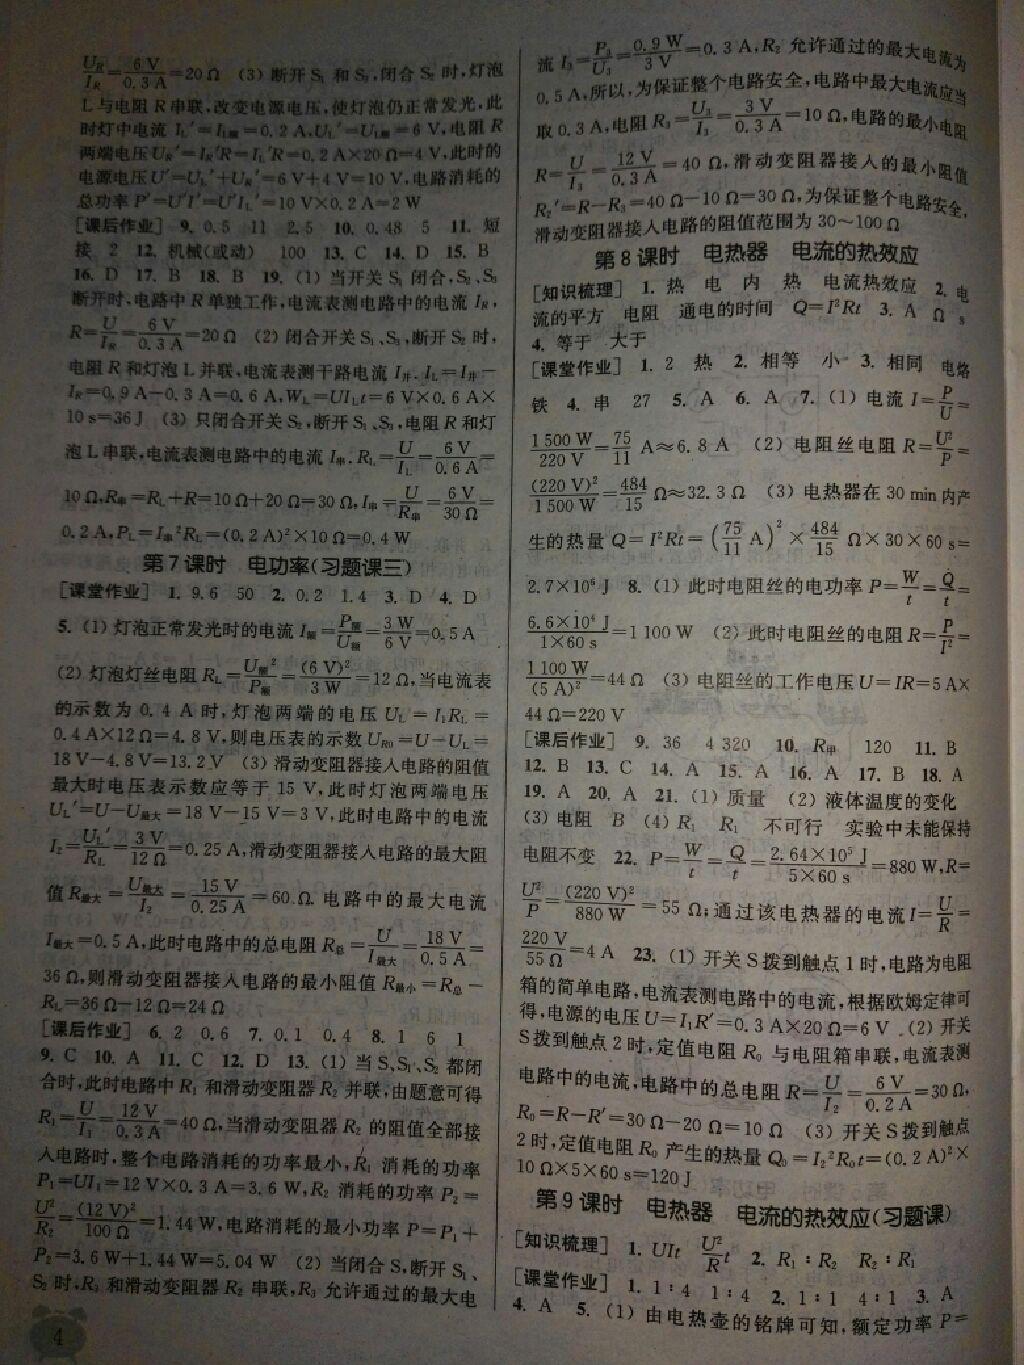 U_R/I_R=6 V/0.3 A=20 Ω (3) 断开 S₁ 和 S₃,闭合 S₂ 时,灯泡
L 与电阻 R 串联,改变电源电压,使灯泡仍正常发光,此
时灯中电流 I_L′=I_L额=0.2 A,U_L′=U_L额=6 V,电阻 R
两端电压 U_R′=I_R′R=I_L′R=0.2 A×20 Ω=4 V,此时的
电源电压 U′=U_L′+U_R′=6 V+4 V=10 V,电路消耗的
总功率 P′=U′I′=U′I_L′=10 V×0.2 A=2 W
[课后作业] 9. 0.5 11 2.5 10. 0.48 5 11. 短
接 2 12. 机械(或动) 100 13. C 14. D 15. B
16. D 17. B 18. B 19. (1) 当开关 S₁ 闭合,S₂、S₃
断开时,电路中 R 单独工作,电流表测电路中的电流 I_R,
R=U/I_R=6 V/0.3 A=20 Ω (2) 闭合开关 S₁、S₃,断开 S₂ 时,
电阻 R 和灯泡 L 并联,电流表测干路电流 I并,I_L=I并-
I_R=0.9 A-0.3 A=0.6 A,W_L=UI_Lt=6 V×0.6 A×
10 s=36 J (3) 只闭合开关 S₂,断开 S₁、S₃,电阻 R 和灯
泡 L 串联,电流表测电路中的电流 I串,R_L=U/I_L=6 V/0.6 A=
10 Ω,R串=R_L+R=10 Ω+20 Ω=30 Ω,I串=U/R串=6 V/30 Ω=
0.2 A,P_L=I串²R_L=(0.2 A)²×10 Ω=0.4 W
第 7 课时 电功率(习题课三)
[课堂作业] 1. 9.6 50 2. 0.2 1.4 3. D 4. D
5. (1) 灯泡正常发光时的电流 I额=P额/U额=3 W/6 V=0.5 A
(2) 灯泡灯丝电阻 R_L=U额²/P额=(6 V)²/3 W=12 Ω,当电流表
的示数为 0.4 A 时,灯泡两端的电压 U_L=I₁R_L=
0.4 A×12 Ω=4.8 V,则电压表的示数 U_R0=U-U_L=
18 V-4.8 V=13.2 V (3) 滑动变阻器接入电路的阻值
最大时电压表示数应等于 15 V,此时灯泡两端电压
U_L′=U-U最大=18 V-15 V=3 V,此时电路中的电流
I₂=U_L′/R_L=3 V/12 Ω=0.25 A,滑动变阻器接入电路的最大阻
值 R最大=U最大/I₂=15 V/0.25 A=60 Ω. 电路中的最大电流
I最大=0.5 A,此时电路中的总电阻 R总=U/I最大=18 V/0.5 A=
36 Ω,则滑动变阻器接入电路的最小阻值 R最小=R总-
R_L=36 Ω-12 Ω=24 Ω
[课后作业] 6. 2 0.6 7. 0.1 0.4 8. 1 6 1
9. C 10. A 11. C 12. D 13. (1) 当 S、S₁、S₂ 都闭
合时,此时电路中 R₁ 和滑动变阻器 R₂ 并联,由题意可得
R₁=U/I₁=12 V/0.3 A=40 Ω,当滑动变阻器 R₂ 的阻值全部接
入电路时,整个电路消耗的功率最小,R₁ 消耗的功率
P₁=UI₁=12 V×0.3 A=3.6 W,R₂ 消耗的功率 P₂=
U²/R₂=(12 V)²/100 Ω=1.44 W,电路消耗的最小功率 P=P₁+
P₂=3.6 W+1.44 W=5.04 W (2) 当闭合 S,断开 S₁、
S₂ 时,R₃ 和滑动变阻器 R₂ 串联,R₃ 允许通过的最大电
4
流 I₃=P₃/U₃=0.9 W/3 V=0.3 A,R₂ 允许通过的最大电流为
0.5 A,所以,为保证整个电路安全,电路中最大电流应当
取 0.3 A,电阻 R₃=U₃/I₃=3 V/0.3 A=10 Ω,电路的最小电阻
R=U/I₃=12 V/0.3 A=40 Ω,滑动变阻器接入的最小阻值
R₂′=R-R₃=40 Ω-10 Ω=30 Ω,为保证整个电路安全,
滑动变阻器接入电路的阻值范围为 30~100 Ω
第 8 课时 电热器 电流的热效应
[知识梳理] 1. 热 电 内 热 电流热效应 2. 电
流的平方 电阻 通电的时间 Q=I²Rt 3. A Ω s
4. 等于 大于
[课堂作业] 1. 2 热 2. 相等 小 3. 相同 电烙
铁 4. 串 27 5. A 6. A 7. (1) 电流 I=P/U=
1 500 W/220 V=75/11 A≈6.8 A (2) 电阻丝电阻 R=U²/P=
(220 V)²/1 500 W=484/15 Ω≈32.3 Ω (3) 电热器在 30 min 内产
生的热量 Q=I²Rt=(75/11 A)²×484/15 Ω×30×60 s=
2.7×10⁶ J 8. (1) 此时电阻丝的电功率 P=W/t=Q/t=
6.6×10⁴ J/1×60 s=1 100 W (2) 此时电阻丝的电阻 R=P/I²=
1 100 W/(5 A)²=44 Ω (3) 电阻丝的工作电压 U=IR=5 A×
44 Ω=220 V
[课后作业] 9. 36 4 320 10. R甲 120 11. B
12. B 13. C 14. A 15. A 16. A 17. B 18. A
19. A 20. A 21. (1) 质量 (2) 液体温度的变化
(3) 电阻 B (4) R₁ R₁ 不可行 实验中未能保持
电阻不变 22. P=W/t=Q/t=2.64×10⁵ J/5×60 s=880 W,R=
U²/P=(220 V)²/880 W=55 Ω;通过该电热器的电流 I=U/R=
220 V/55 Ω=4 A 23. (1) 开关 S 拨到触点 1 时,电路为电阻
箱的简单电路,电流表测电路中的电流,根据欧姆定律可
得,电源的电压 U=I₁R′=0.3 A×20 Ω=6 V (2) 开关
S 拨到触点 2 时,定值电阻 R₀ 与电阻箱串联,电流表测
电路中的电流,电路中的总电阻 R=U/I₂=6 V/0.2 A=30 Ω,
R₀=R-R′=30 Ω-20 Ω=10 Ω (3) 开关 S 拨到触点
2 时,定值电阻 R₀ 产生的热量 Q₀=I₂²R₀t=(0.2 A)²×
10 Ω×5×60 s=120 J
第 9 课时 电热器 电流的热效应(习题课)
[知识梳理] 1. UIt U²/R t 2. R₁∶R₂ R₂∶R₁
[课堂作业] 1. 1∶4 1∶4 2. 1∶1 4∶1 3. A
4. A 5. (1) 由电热壶的铭牌可知,额定功率 P=